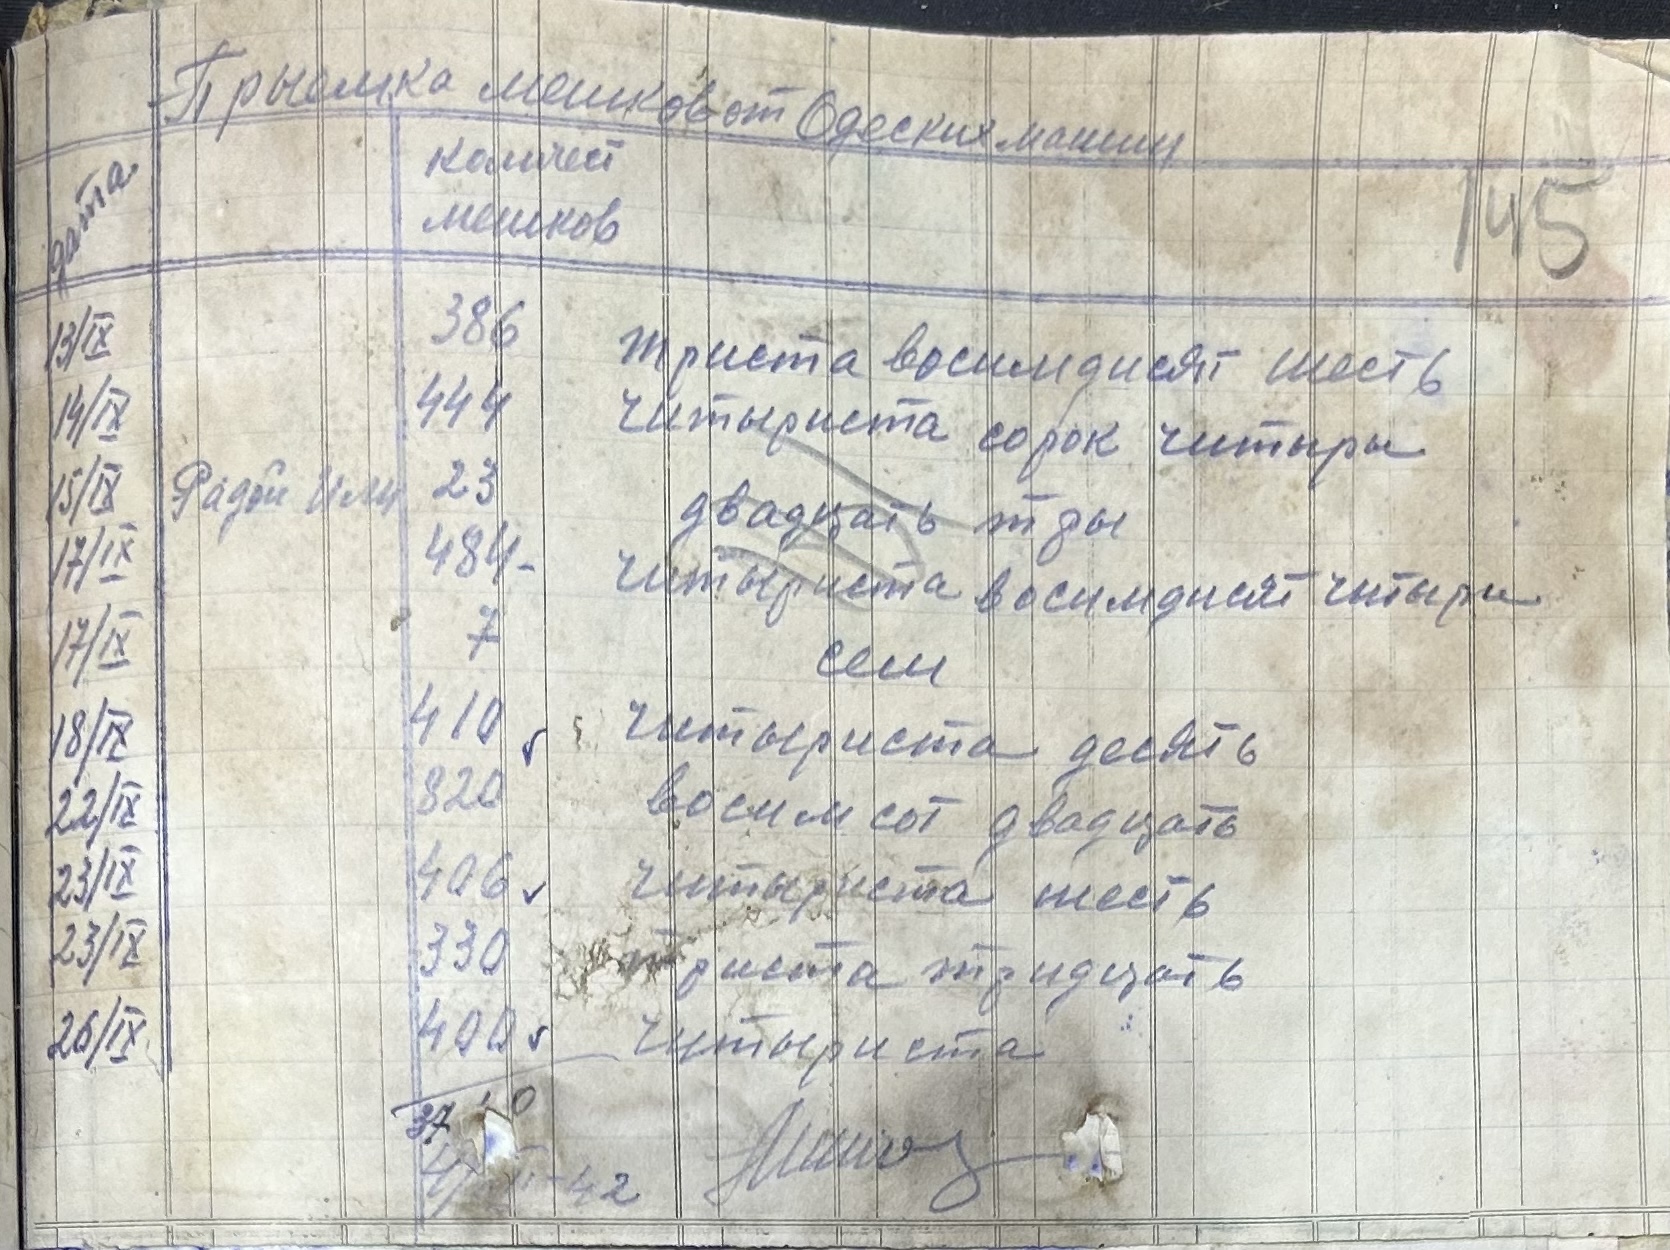 Прыемка мешков от Одеских машин
145
дата количест
мешков
13/IX 386 триста восимдисят шесть
14/IX 444 читыриста сорок читыры
15/IX Радой 23 двадцать тры
17/IX 484- читыриста восимдисят читыри
17/IX 7 сем
18/IX 410 читыриста десять
22/IX 820 восимсот двадцать
23/IX 406 читыриста шесть
23/IX 330 триста тридцать
26/IX 400 читыриста
37 0
-42